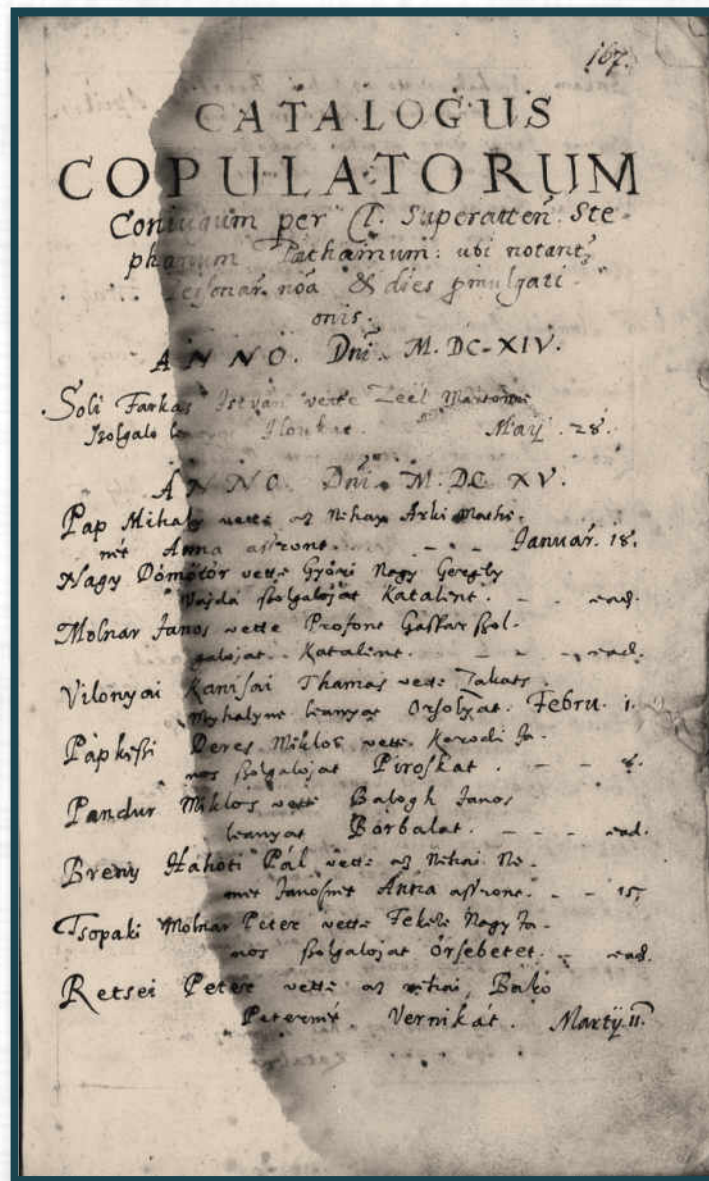 167.
CATALOGUS
COPULATORUM
Coniugum per Cl. Superatten. Ste-
phanum Pathainum: ubi notant
nõa & dies pmulgati-
onis.
ANNO. Dni. M. DC-XIV.
Soli Farkas Istvan vette Zeel
May. 28.
ANNO. Dni. M. DC XV.
Pap Mihaly vette az Nihay
Anna aszont. - - Januar. 18.
Nagy Dömötör vette Györi Nagy Gergely
Vajda szolgalojat Katalint. - - ead.
Molnar Janos vette Profont Gaspar szol-
galojat. Katalint. - - - ead.
Vilonyai Kanisai Thamas vette Takats
Myhalyne leanyat Orsolyat. Febru. 1.
Papkeszi Deres Miklos vette Ja-
nos szolgalojat Piroskat. - - 8.
Pandur Miklos vette Balogh Janos
leanyat Borbalat. - - - ead.
Breny Hahoti Pál vette az Nihai Ne-
met Anna aszont. - - 15.
Tsopaki Molnar Peter vette Fekete Nagy Ja-
nos szolgalojat Orsebetet. - ead.
Retsei Peter vette az nihai, Bakó
Peterné Vernikát. Martÿ. 11.